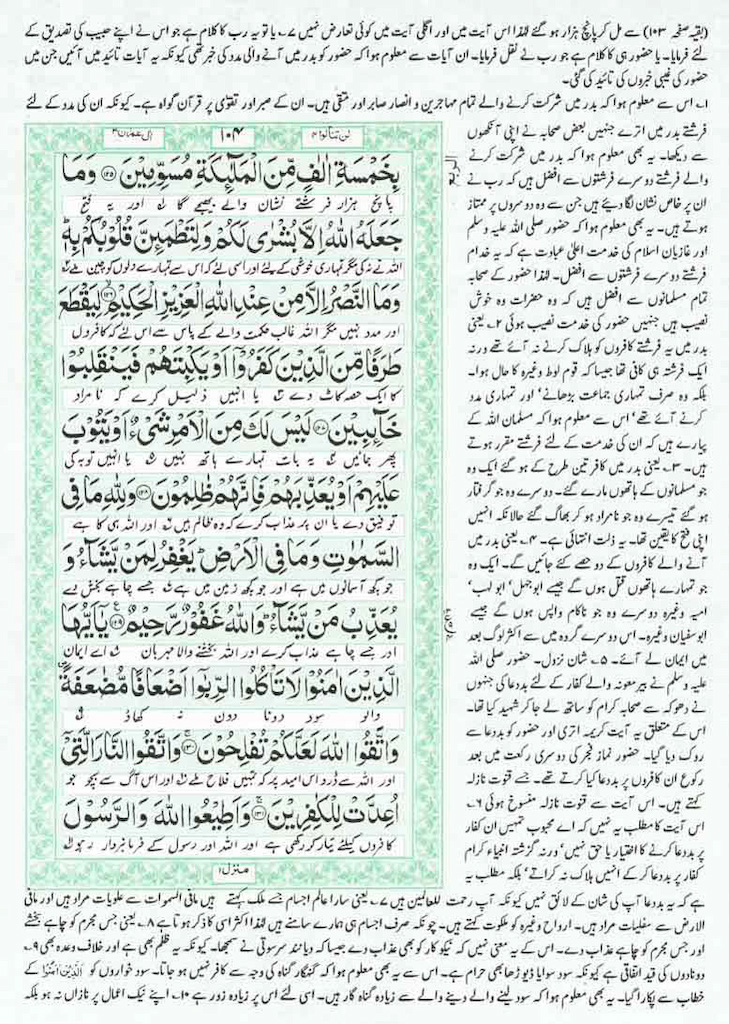 (بقیہ صفحہ ۱۰۳) سے مل کر پانچ ہزار ہو گئے لہٰذا اس آیت میں اور اگلی آیت میں کوئی تعارض نہیں ۷۔ یا تو یہ رب کا کلام ہے جو اس نے اپنے حبیب کی تصدیق کے
لئے فرمایا۔ یا حضور ہی کا کلام ہے جو رب نے نقل فرمایا۔ ان آیات سے معلوم ہوا کہ حضور کو بدر میں آنے والی مدد کی خبر تھی کیونکہ یہ آیات تائید میں آئیں جن میں
حضور کی غیبی خبروں کی تائید کی گئی۔
۱۔ اس سے معلوم ہوا کہ بدر میں شرکت کرنے والے تمام مہاجرین و انصار صابر اور متقی ہیں۔ ان کے صبر اور تقویٰ پر قرآن گواہ ہے۔ کیونکہ ان کی مدد کے لئے
فرشتے بدر میں اترے جنہیں بعض صحابہ نے اپنی آنکھوں
سے دیکھا۔ یہ بھی معلوم ہوا کہ بدر میں شرکت کرنے
والے فرشتے دوسرے فرشتوں سے افضل ہیں کہ رب نے
ان پر خاص نشان لگا دیئے ہیں جن سے وہ دوسروں پر ممتاز
ہوتے ہیں۔ یہ بھی معلوم ہوا کہ حضور صلی اللہ علیہ وسلم
اور غازیان اسلام کی خدمت اعلیٰ عبادت ہے کہ یہ خدام
فرشتے دوسرے فرشتوں سے افضل۔ لہٰذا حضور کے صحابہ
تمام مسلمانوں سے افضل ہیں کہ وہ حضرات وہ خوش
نصیب ہیں جنہیں حضور کی خدمت نصیب ہوئی ۲۔ یعنی
بدر میں یہ فرشتے کافروں کو ہلاک کرنے نہ آئے تھے ورنہ
ایک فرشتہ ہی کافی تھا جیسا کہ قوم لوط وغیرہ کا حال ہوا۔
بلکہ وہ صرف تمہاری جماعت بڑھانے' اور تمہاری مدد
کرنے آئے تھے' اس سے معلوم ہوا کہ مسلمان اللہ کے
پیارے ہیں کہ ان کی خدمت کے لئے فرشتے مقرر ہوتے
ہیں۔ ۳۔ یعنی بدر میں کافر تین طرح کے ہو گئے ایک وہ
جو مسلمانوں کے ہاتھوں مارے گئے۔ دوسرے وہ جو گرفتار
ہو گئے تیسرے وہ جو نامراد ہو کر بھاگ گئے حالانکہ انہیں
اپنی فتح کا یقین تھا۔ یہ ذلت انتہائی ہے۔ ۴۔ یعنی بدر میں
آنے والے کافروں کے دو حصے کئے جائیں گے۔ ایک وہ
جو تمہارے ہاتھوں قتل ہوں گے جیسے ابوجہل' ابو لہب'
امیہ وغیرہ دوسرے وہ جو ناکام واپس ہوں گے جیسے
ابوسفیان وغیرہ۔ اس دوسرے گروہ میں سے اکثر لوگ بعد
میں ایمان لے آئے۔ ۵۔ شان نزول۔ حضور صلی اللہ
علیہ وسلم نے بیر معونہ والے کفار کے لئے بددعا کی جنہوں
نے دھوکہ سے صحابہ کرام کو ساتھ لے جا کر شہید کیا تھا۔
اس کے متعلق یہ آیت کریمہ اتری اور حضور کو بددعا سے
روک دیا گیا۔ حضور نماز فجر کی دوسری رکعت میں بعد
رکوع ان کافروں پر بددعا کیا کرتے تھے۔ جسے قنوت نازلہ
کہتے ہیں۔ اس آیت سے قنوت نازلہ منسوخ ہوئی ۶۔
اس آیت کا مطلب یہ نہیں کہ اے محبوب تمہیں ان کفار
پر بددعا کرنے کا اختیار یا حق نہیں' ورنہ گزشتہ انبیاء کرام
کفار پر بددعا کر کے انہیں ہلاک نہ کراتے' بلکہ مطلب یہ
لن تنالوا ۴
۱۰۴
اٰل عمران ۳
بِخَمْسَةِ اٰلٰفٍ مِّنَ الْمَلٰٓئِكَةِ مُسَوِّمِیْنَ ﴿۱۲۵﴾ وَمَا
پانچ ہزار فرشتے نشان والے بھیجے گا ۱؎ اور یہ فتح
جَعَلَهُ اللّٰهُ اِلَّا بُشْرٰی لَكُمْ وَلِتَطْمَىِٕنَّ قُلُوْبُكُمْ بِهٖ ؕ
اللہ نے نہ کی مگر تمہاری خوشی کے لئے اور اسی لئے کہ اس سے تمہارے دلوں کو چین ملے ۲؎
وَمَا النَّصْرُ اِلَّا مِنْ عِنْدِ اللّٰهِ الْعَزِیْزِ الْحَكِیْمِ ﴿۱۲۶﴾ لِیَقْطَعَ
اور مدد نہیں مگر اللہ غالب حکمت والے کے پاس سے اس لئے کہ کافروں
طَرَفًا مِّنَ الَّذِیْنَ كَفَرُوْۤا اَوْ یَكْبِتَهُمْ فَیَنْقَلِبُوْا
کا ایک حصہ کاٹ دے ۳؎ یا انہیں ذلیل کرے کہ نامراد
خَآىِٕبِیْنَ ﴿۱۲۷﴾ لَیْسَ لَكَ مِنَ الْاَمْرِ شَیْءٌ اَوْ یَتُوْبَ
پھر جائیں ۴؎ یہ بات تمہارے ہاتھ نہیں ۵؎ یا انہیں توبہ کی
عَلَیْهِمْ اَوْ یُعَذِّبَهُمْ فَاِنَّهُمْ ظٰلِمُوْنَ ﴿۱۲۸﴾ وَلِلّٰهِ مَا فِی
توفیق دے یا ان پر عذاب کرے کہ وہ ظالم ہیں ۶؎ اور اللہ ہی کا ہے
السَّمٰوٰتِ وَمَا فِی الْاَرْضِ ؕ یَغْفِرُ لِمَنْ یَّشَآءُ وَ
جو کچھ آسمانوں میں ہے اور جو کچھ زمین میں ہے ۷؎ جسے چاہے بخش دے
یُعَذِّبُ مَنْ یَّشَآءُ ؕ وَاللّٰهُ غَفُوْرٌ رَّحِیْمٌ ﴿۱۲۹﴾ یٰۤاَیُّهَا
اور جسے چاہے عذاب کرے اور اللہ بخشنے والا مہربان ۸؎ اے ایمان
الَّذِیْنَ اٰمَنُوْا لَا تَاْكُلُوا الرِّبٰۤوا اَضْعَافًا مُّضٰعَفَةً ۪
والو سود دونا دون نہ کھاؤ ۹؎
وَّاتَّقُوا اللّٰهَ لَعَلَّكُمْ تُفْلِحُوْنَ ﴿۱۳۰﴾ وَاتَّقُوا النَّارَ الَّتِیْۤ
اور اللہ سے ڈرو اس امید پر کہ تمہیں فلاح ملے ۱۰؎ اور اس آگ سے بچو جو
اُعِدَّتْ لِلْكٰفِرِیْنَ ﴿۱۳۱﴾ وَاَطِیْعُوا اللّٰهَ وَالرَّسُوْلَ
کافروں کیلئے تیار کر رکھی ہے اور اللہ اور رسول کے فرمانبردار رہو
منزل ۱
ہے کہ یہ بددعا آپ کی شان کے لائق نہیں کیونکہ آپ رحمت للعالمین ہیں ۷۔ یعنی سارا عالم اجسام جسے ملک کہتے ہیں مافی السموات سے علویات مراد ہیں اور مافی
الارض سے سفلیات مراد ہیں۔ ارواح وغیرہ کو ملکوت کہتے ہیں۔ چونکہ صرف اجسام ہی ہمارے سامنے ہیں لہٰذا اکثر اسی کا ذکر ہوتا ہے ۸۔ یعنی جس مجرم کو چاہے بخشے
اور جس مجرم کو چاہے عذاب دے۔ اس کے یہ معنی نہیں کہ نیکو کار کو بھی عذاب دے جیسا کہ دیانند سرسوتی نے سمجھا۔ کیونکہ یہ ظلم بھی ہے اور خلاف وعدہ بھی ۹۔
دونا دون کی قید اتفاقی ہے کیونکہ سود سوایا ڈیوڑھا بھی حرام ہے۔ اس سے یہ بھی معلوم ہوا کہ گنہگار گناہ کی وجہ سے کافر نہیں ہو جاتا۔ سود خواروں کو الَّذِیْنَ اٰمَنُوْا کے
خطاب سے پکارا گیا۔ یہ بھی معلوم ہوا کہ سود لینے والے دینے والے سے زیادہ گناہ گار ہیں۔ اسی لئے اس پر زیادہ زور ہے ۱۰۔ اپنے نیک اعمال پر نازاں نہ ہو بلکہ